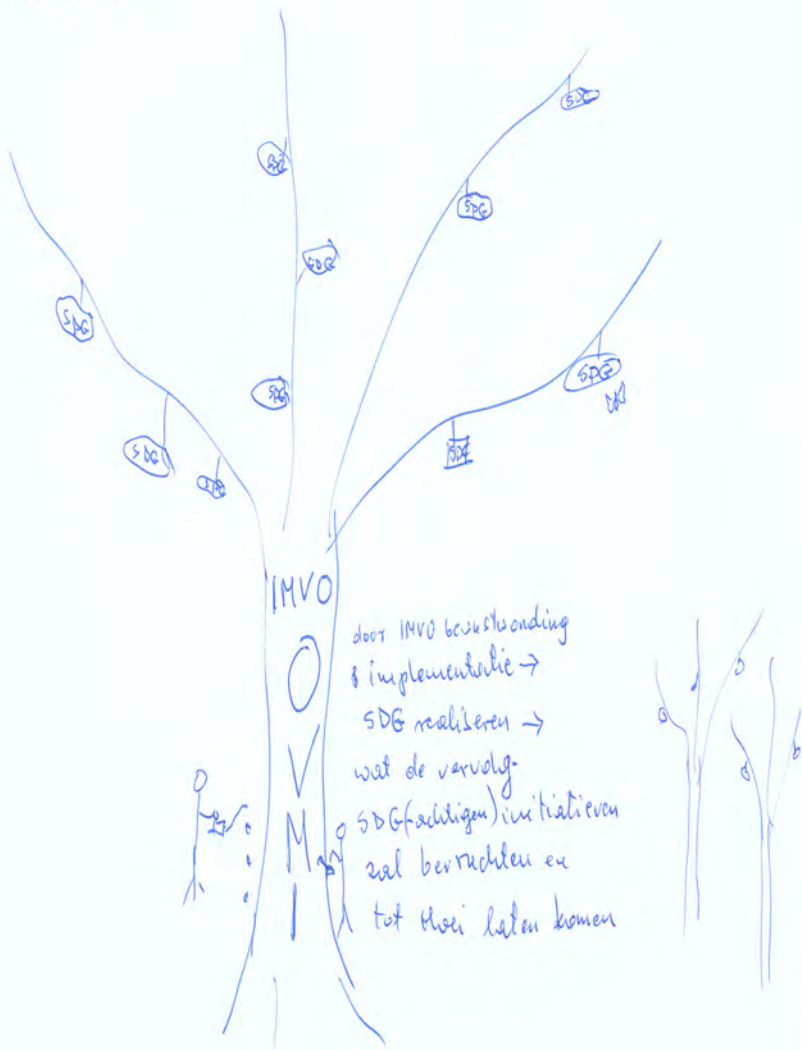 SDG
SDG
SDG
SDG
SDG
SDG
SDG
SDG
SDG
SDG
IMVO
O
V
M
I
door IMVO bewustwording
& implementatie →
SDG realiseren →
wat de vervolg-
SDG(-achtigen) initiatieven
zal bevruchten en
tot bloei laten komen